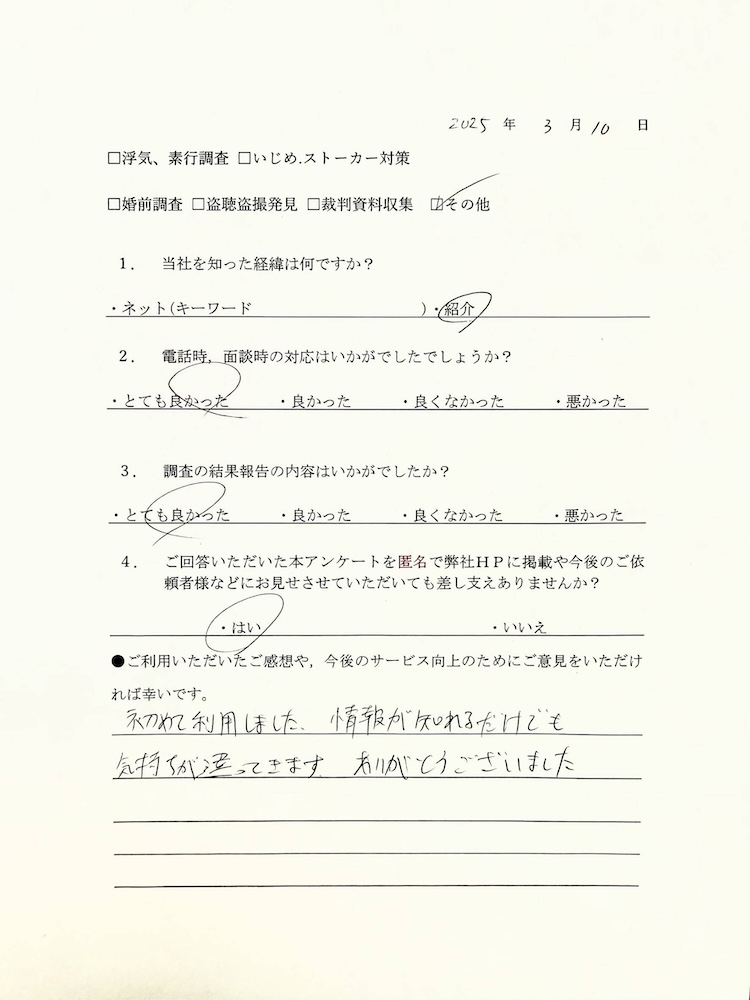 2025 年 3 月 10 日
□浮気、素行調査 □いじめ.ストーカー対策
□婚前調査 □盗聴盗撮発見 □裁判資料収集 ☑その他
1. 当社を知った経緯は何ですか？
・ネット(キーワード )・紹介
2. 電話時，面談時の対応はいかがでしたでしょうか？
・とても良かった ・良かった ・良くなかった ・悪かった
3. 調査の結果報告の内容はいかがでしたか？
・とても良かった ・良かった ・良くなかった ・悪かった
4. ご回答いただいた本アンケートを匿名で弊社ＨＰに掲載や今後のご依
頼者様などにお見せさせていただいても差し支えありませんか？
・はい ・いいえ
●ご利用いただいたご感想や，今後のサービス向上のためにご意見をいただけ
れば幸いです。
初めて利用しました、情報が知れるだけでも
気持ちが違ってきます ありがとうございました